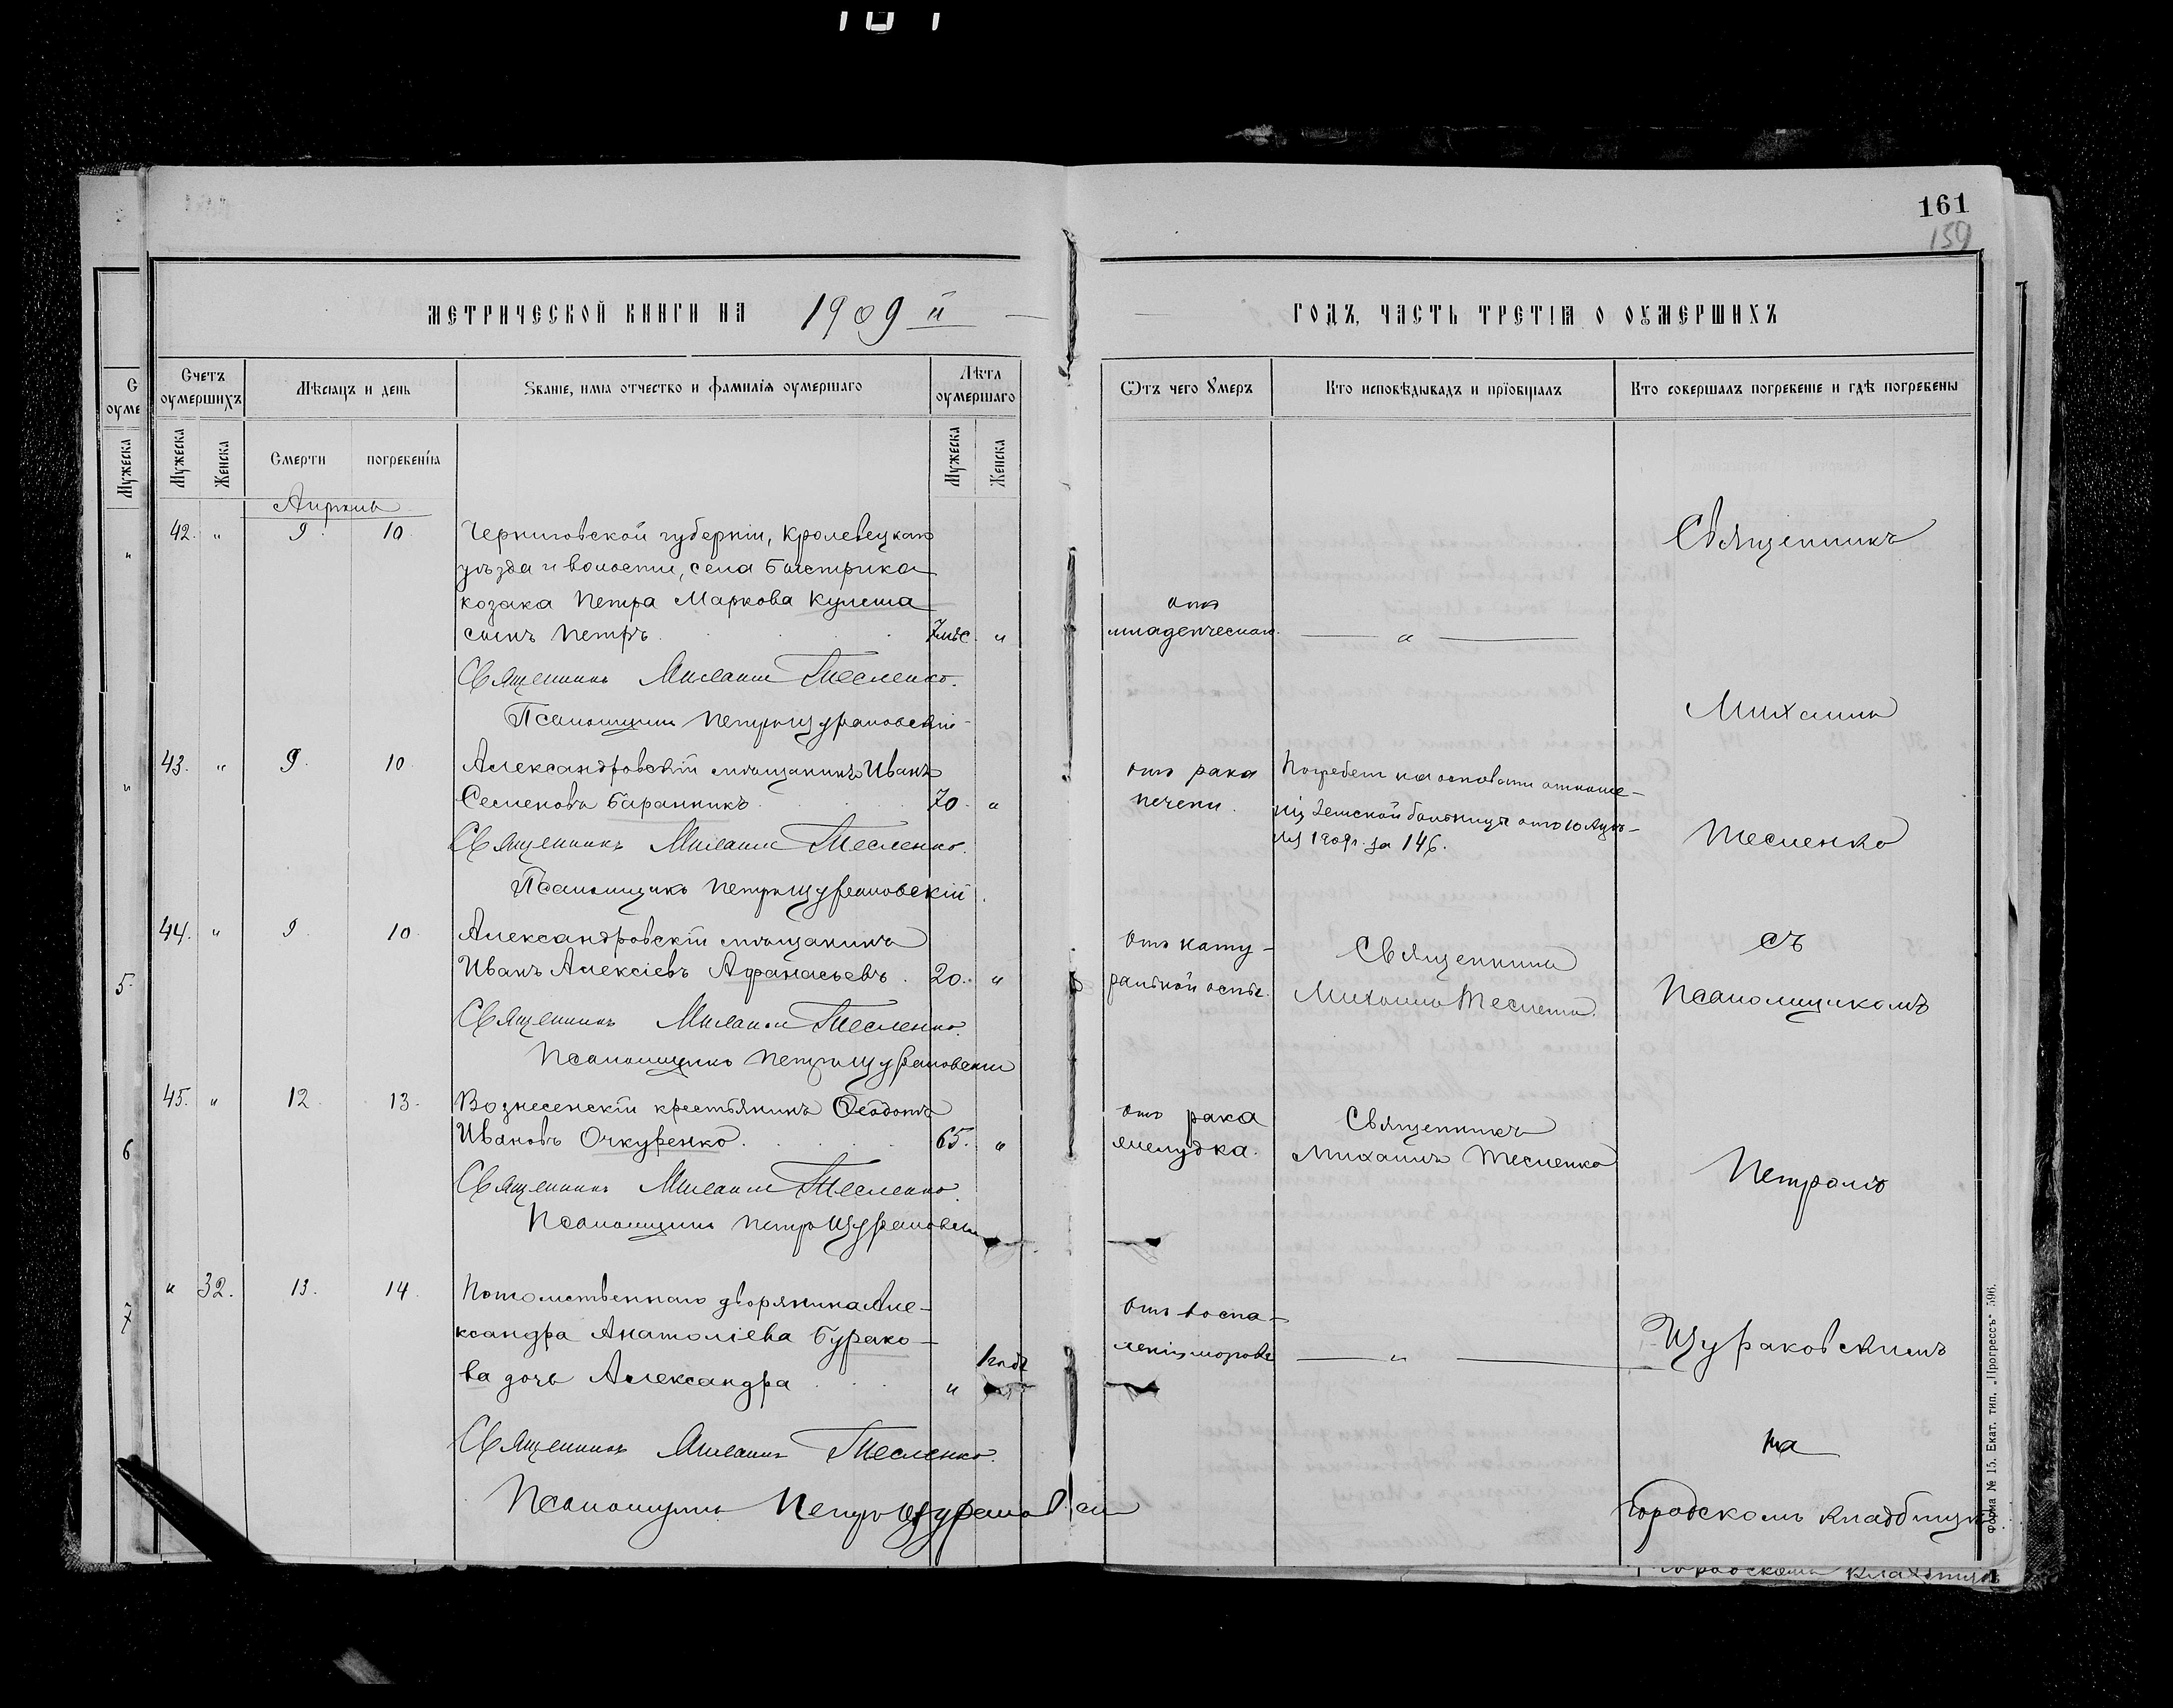 161
159
МЕТРИЧЕСКОЙ КНИГИ НА 1909 й
ГОДЪ, ЧАСТЬ ТРЕТІѦ О ОУМЕРШИХЪ
Счетъ оумершихъ
Мѣсяцъ и день
Званіе, имя отчество и фамилія оумершаго
Лѣта оумершаго
Ѿтъ чего Умеръ
Кто исповѣдывалъ и пріобщалъ
Кто совершалъ погребеніе и гдѣ погребены
Мужеска
Женска
Смерти
погребенія
Мужеска
Женска
Апрѣль
42. " 9. 10.
Черниговской губерніи, Кролевецкаго
уѣзда и волости, села Быстрика
козака Петра Маркова Кулеша
сынъ Петръ. 7 мѣс. "
отъ
младенческаго.
"
Священникъ Михаилъ Тесленко.
Псаломщикъ Петръ Щураковскій
43. " 9. 10.
Александровскій мѣщанинъ Иванъ
Семеновъ Баранникъ. 70. "
отъ рака
печени.
Погребенъ на основаніи отноше-
нія Земской больницы отъ 10 Апрѣ-
ля 1909 г. за 146.
Священникъ Михаилъ Тесленко.
Псаломщикъ Петръ Щураковскій.
44. " 9. 10.
Александровскій мѣщанинъ
Иванъ Алексіевъ Афанасьевъ. 20. "
отъ нату-
ральной оспы.
Священникъ
Михаилъ Тесленко.
Священникъ Михаилъ Тесленко.
Псаломщикъ Петръ Щураковскій
45. " 12. 13.
Вознесенскій крестьянинъ Ѳеодотъ
Ивановъ Очкуренко. 65. "
отъ рака
желудка.
Священникъ
Михаилъ Тесленко
Священникъ Михаилъ Тесленко.
Псаломщикъ Петръ Щураковскій
" 32. 13. 14.
Потомственнаго дворянина Але-
ксандра Анатоліева Бурако-
ва дочь Александра. " 1 годъ
отъ воспа-
ленія мозговъ
"
Священникъ Михаилъ Тесленко.
Псаломщикъ Петръ Щураковскій
Священникъ
Михаилъ
Тесленко
съ
Псаломщикомъ
Петромъ
Щураковскимъ
на
городскомъ кладбищѣ
Форма № 15. Екат. тип. „Прогрессъ" 596.